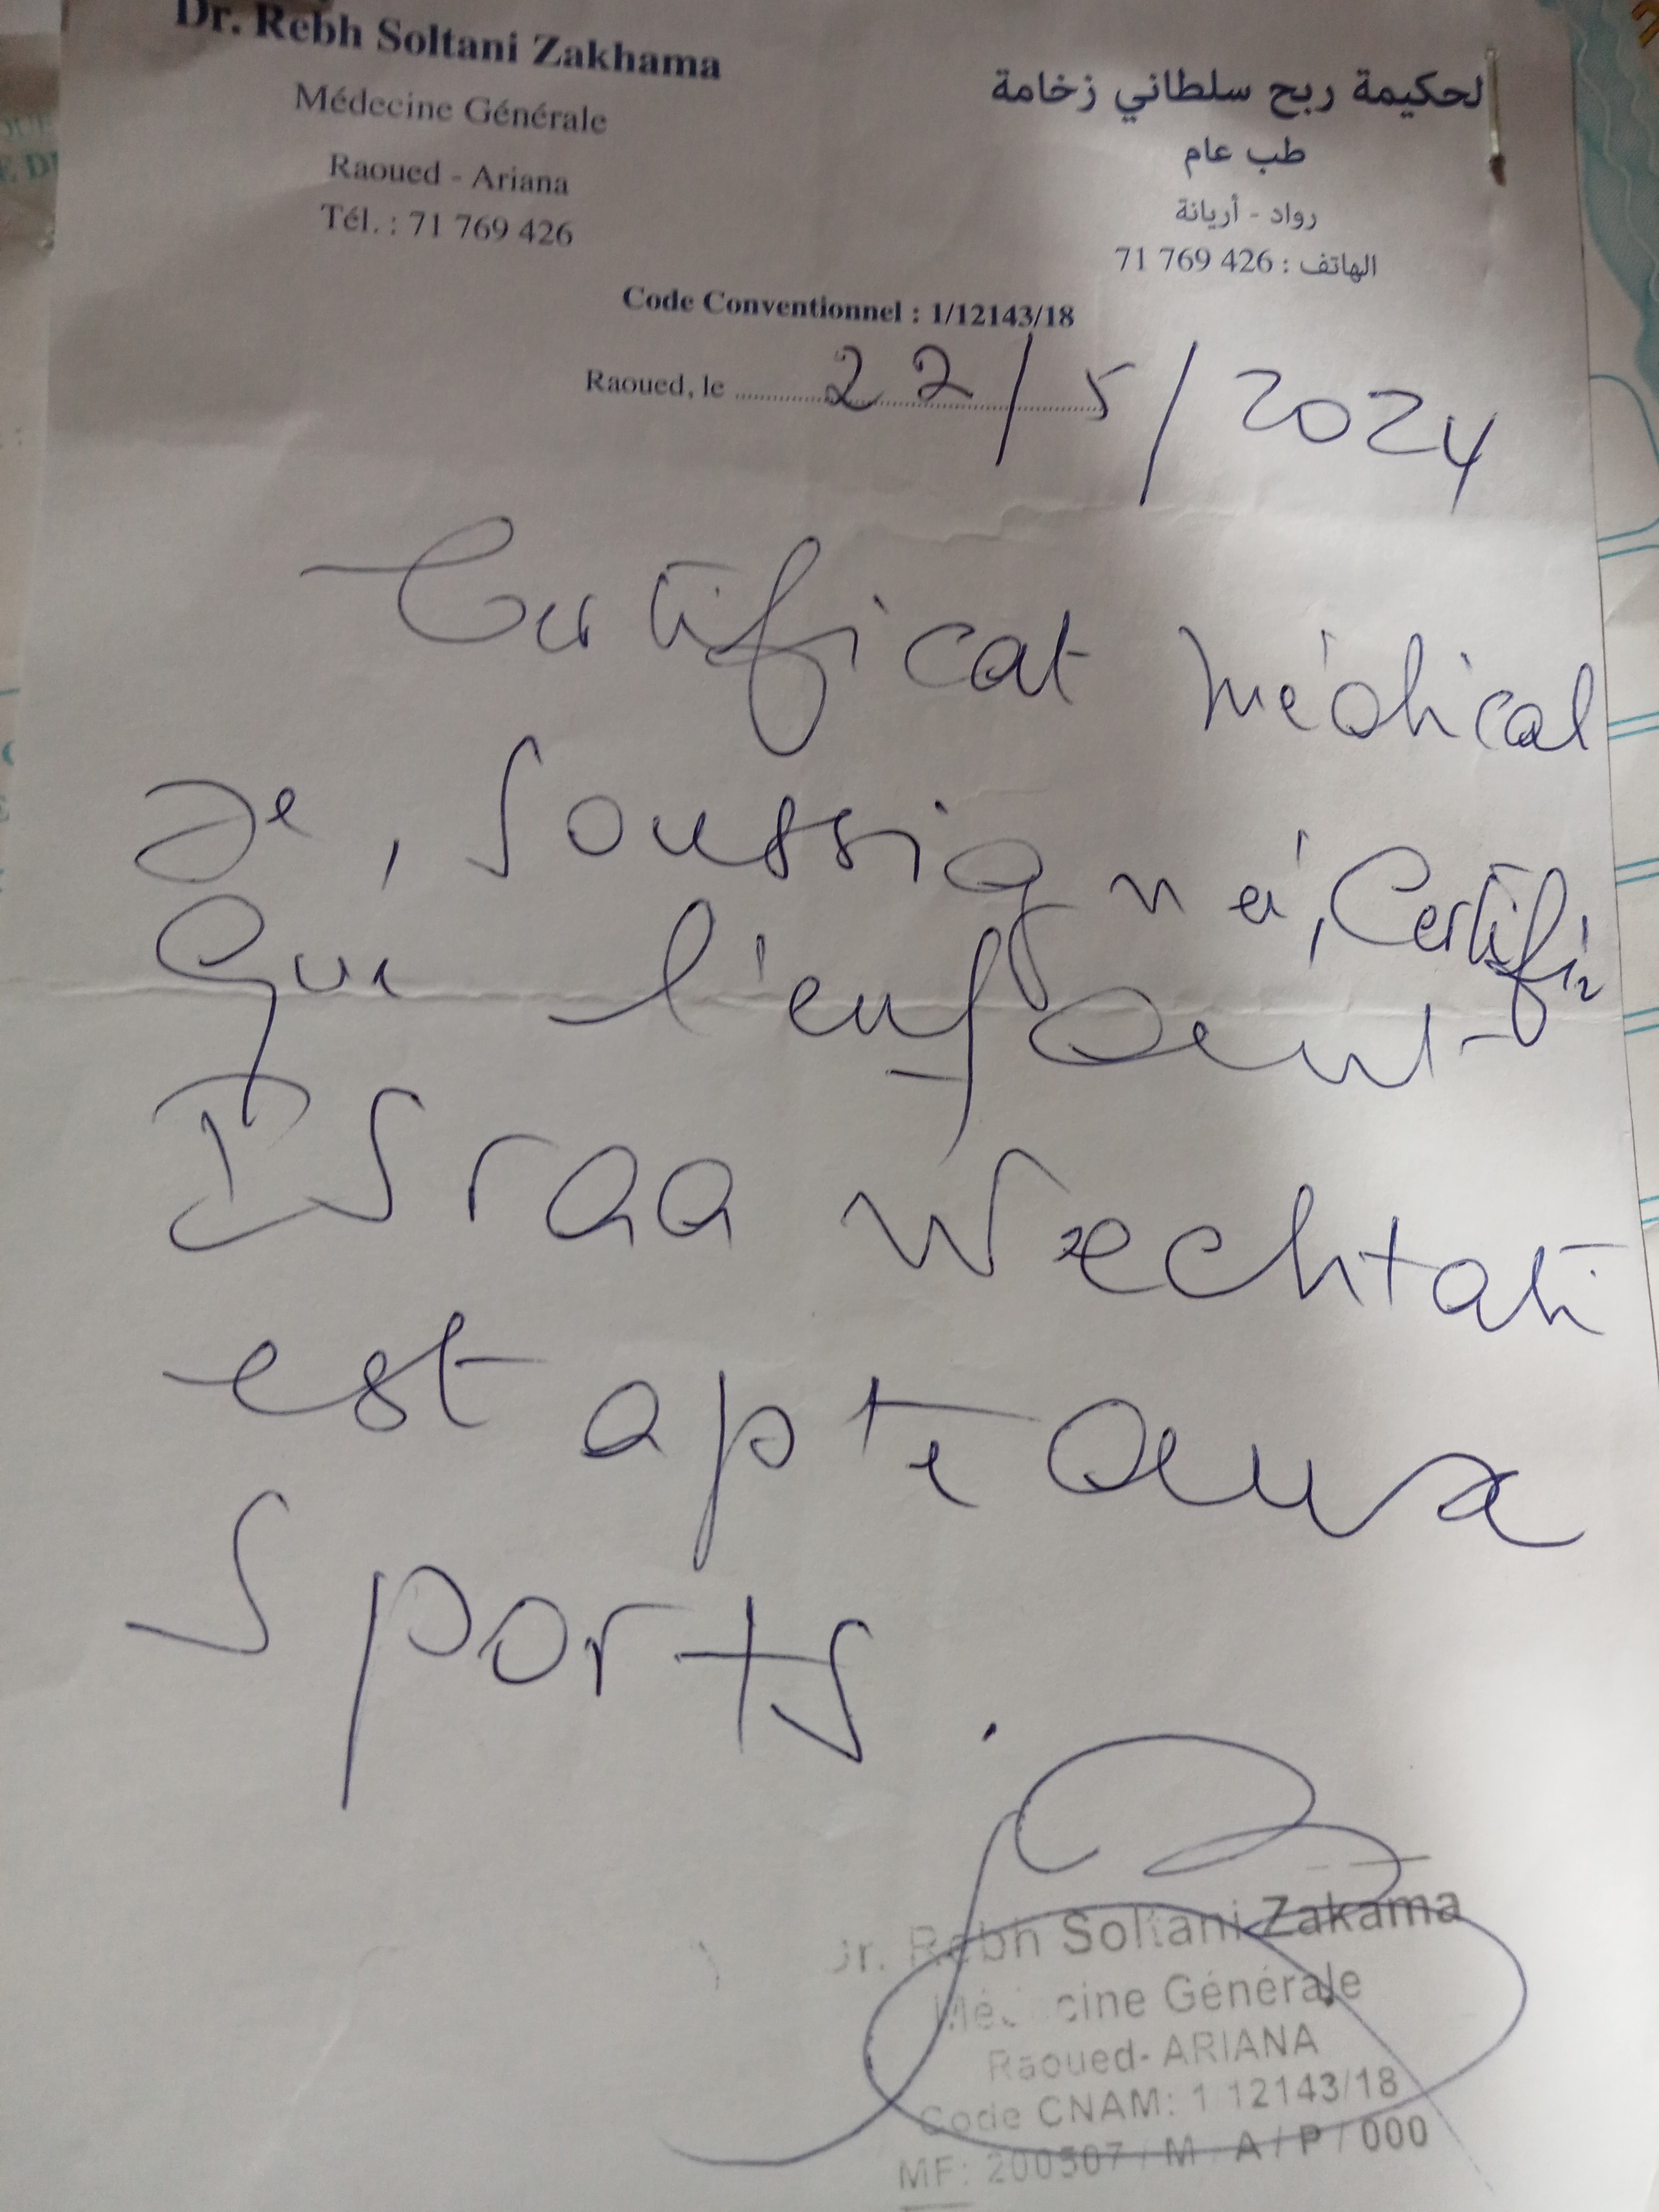 Dr. Rebh Soltani Zakhama
Médecine Générale
Raoued - Ariana
Tél. : 71 769 426
لحكيمة ربح سلطاني زخامة
طب عام
رواد - أريانة
الهاتف : 426 769 71
Code Conventionnel : 1/12143/18
Raoued, le 22/5/2024
Certificat médical
Je, soussigné, Certifie
que l'enfant
Israa Wechtati
est apte aux
Sports.
Dr. Rebh Soltani Zakama
Médecine Générale
Raoued- ARIANA
Code CNAM: 1 12143/18
MF: 200507 / M A / P / 000